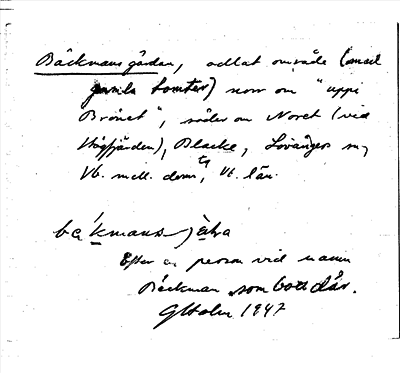 Bäckmansgården, odlat område (med
gamla tomter) norr om "uppi
Brånet", söder om Noret (vid
Högfjärden), Blacke, Lövånger sn,
Vb. mell. dom., Vb. län.
bäkmans-
Efter en person vid namn
Bäckman som bott där.
GHolm 1947